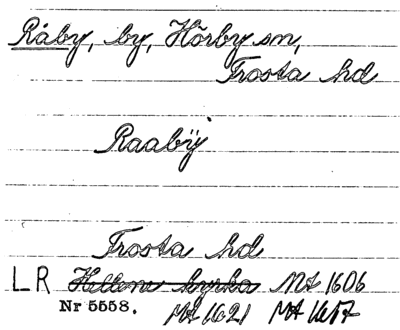 Råby, by, Hörby sn,
Frosta hd
Raabÿ
Frosta hd
LR Hellene kyrka Mt 1606
Nr 5558. Mt 1621 Mt 1657